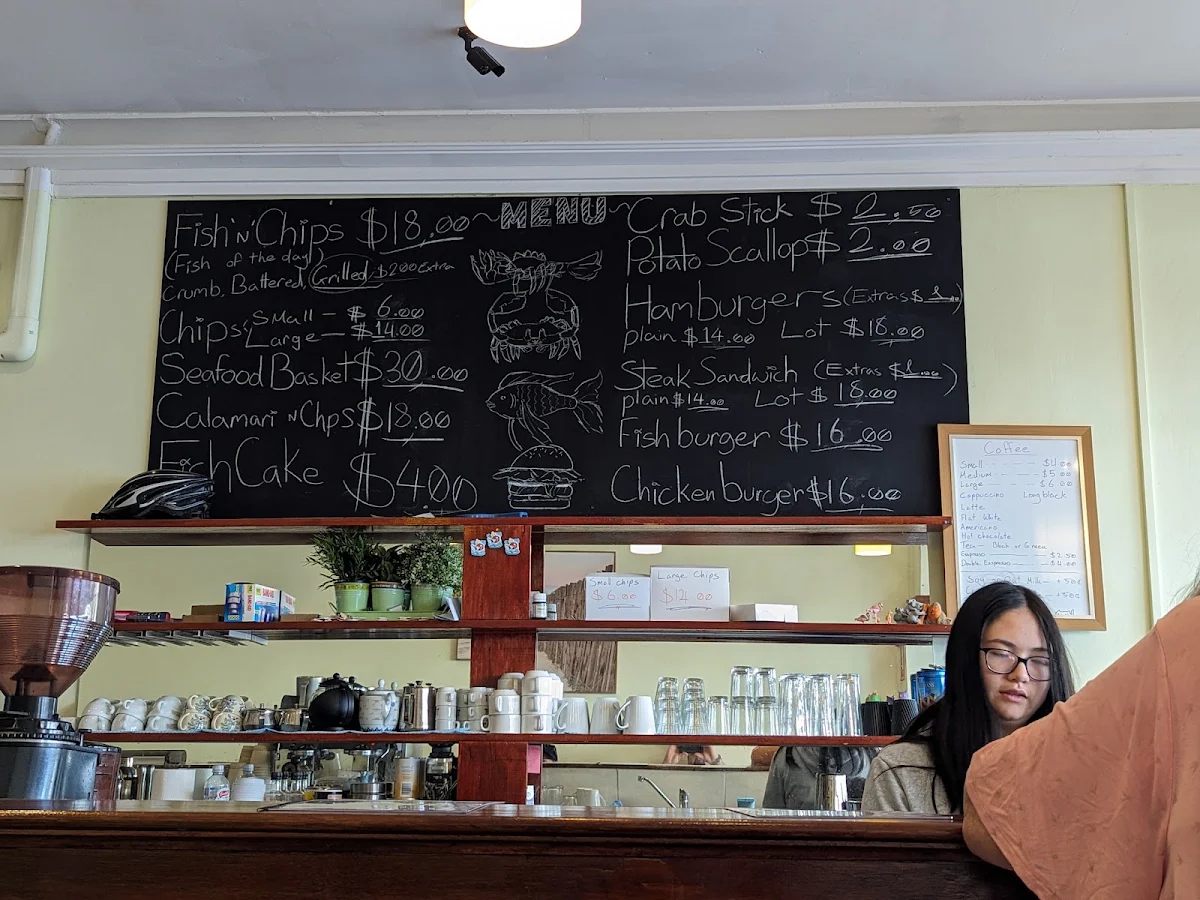 ~MENU~
Fish 'n' Chips $18.00
(Fish of the day)
Crumb, Battered, Grilled $2.00 Extra
Chips Small - $6.00
Large - $14.00
Seafood Basket $30.00
Calamari n Chps $18.00
Fish Cake $400
Crab Stick $2.50
Potato Scallop $2.00
Hamburgers (Extras $1.00)
plain $14.00 Lot $18.00
Steak Sandwich (Extras $1.00)
plain $14.00 Lot $18.00
Fish burger $16.00
Chicken burger $16.00
Small chips
$6.00
Large Chips
$14.00
Coffee
Small $4.00
Medium $5.00
Large $6.00
Cappuccino Long black
Latte
Flat White
Americano
Hot chocolate
Tea - Black or Green
Espresso $2.50
Double Espresso $4.00
Milk - +50c